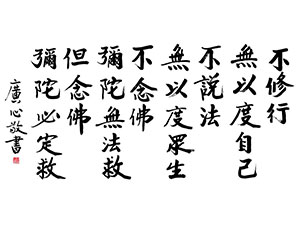 不修行
無以度自己
不說法
無以度眾生
不念佛
彌陀無法救
但念佛
彌陀必定救
廣心敬書